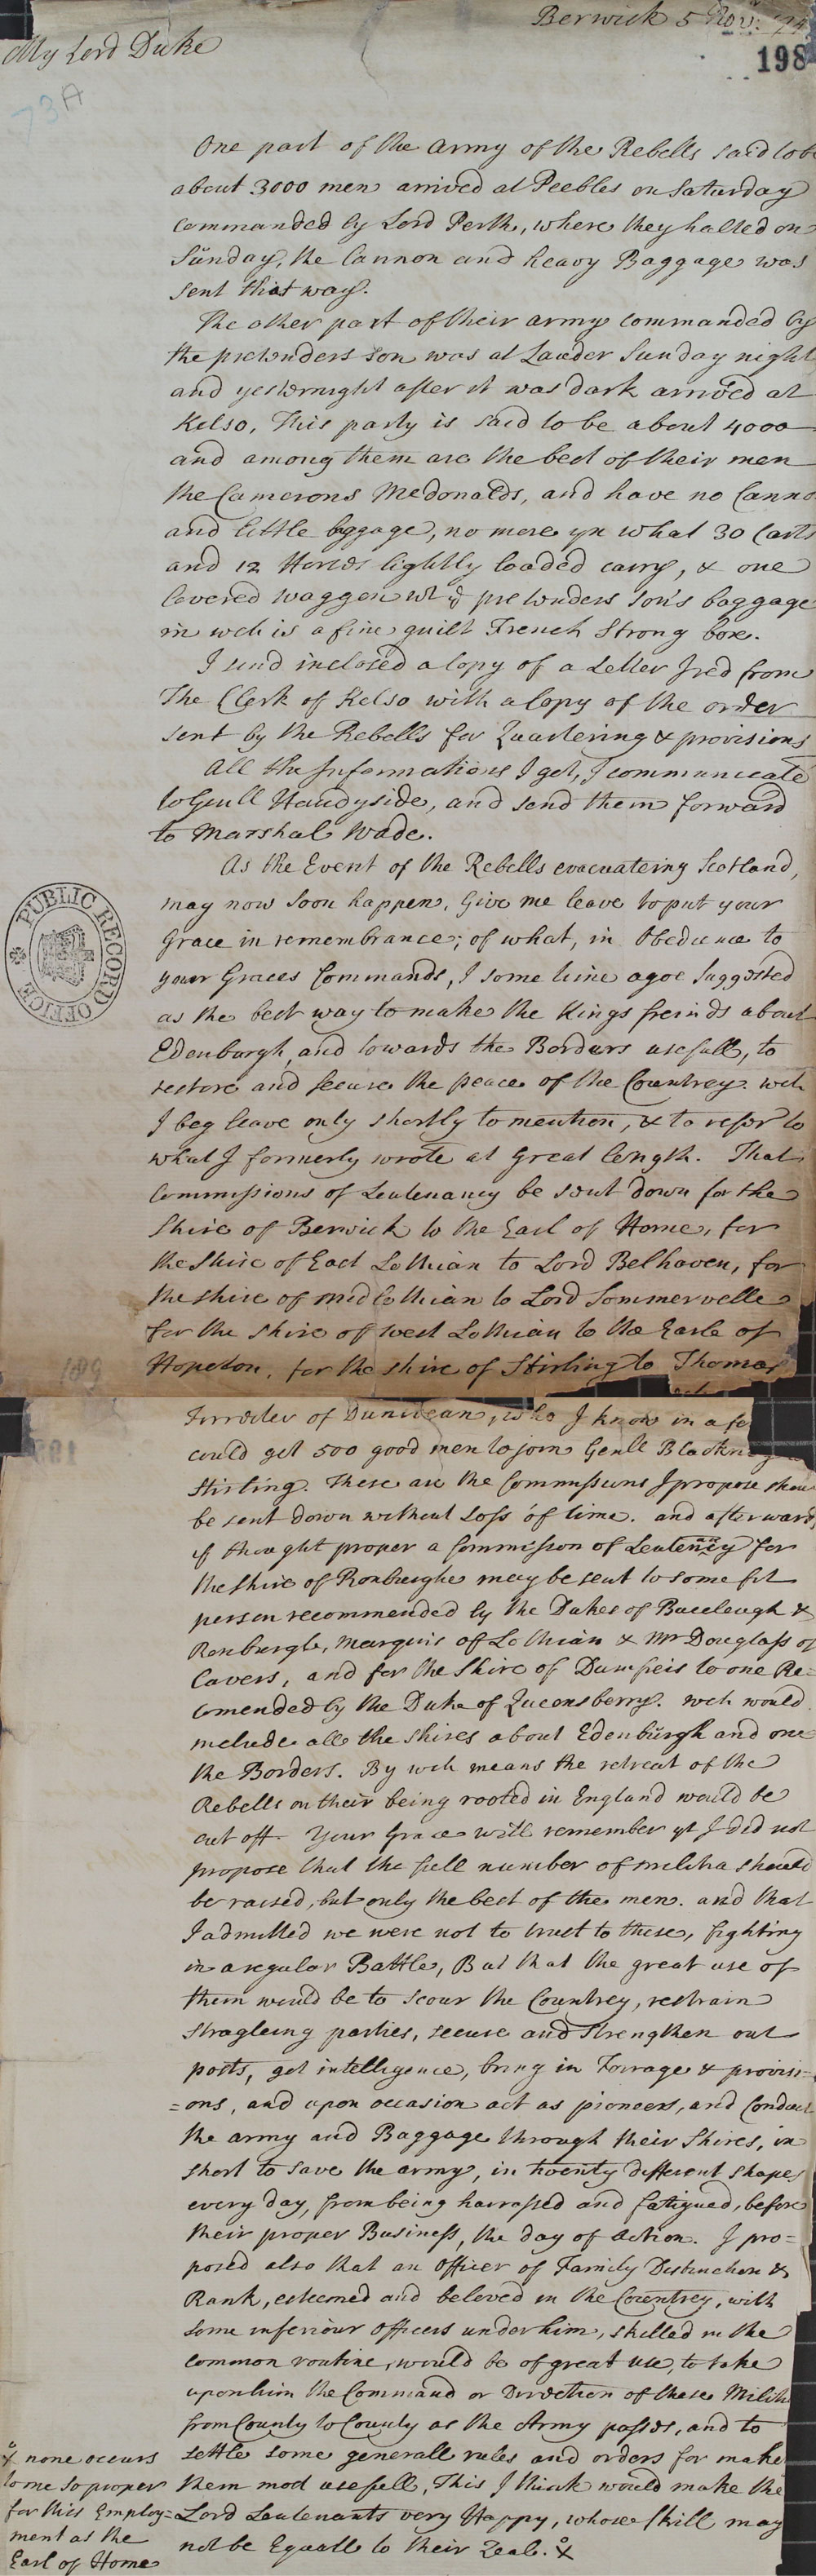 Berwick 5 Novr: 
My Lord Duke
198
73A
One part of the army of the Rebells said to be
about 3000 men arrived at Peebles on Saturday
commanded by Lord Perth, where they halted on
Sunday, the Cannon and heavy Baggage was
sent that way.
The other part of their army commanded by
the pretenders son was at Lauder Sunday night
and yesternight after it was dark arrived at
Kelso, This party is said to be about 4000
and among them are the best of their men
the Camerons Mcdonalds, and have no Canno
and little baggage, no more yn what 30 Carts
and 12 Horses lightly loaded carry, & one
Covered waggon wt ye pretenders son's baggage
in wch is a fine guilt French Strong box.
I send inclosed a Copy of a Letter I red from
The Clerk of Kelso with a Copy of the order
sent by the Rebells for Quartering & provisions
All the Informations I get, I communicate
to Genll Handyside, and send them forward
to Marshal Wade.
As the Event of the Rebells evacuateing Scotland,
may now soon happen, Give me leave to put your
Grace in remembrance; of what, in Obedience to
your Graces Commands, I some time agoe Suggested
as the best way to make the Kings freinds about
Edenburgh, and towards the Borders usefull, to
restore and secure the peace of the Countrey. wch
I beg leave only shortly to mention, & to refer to
what I formerly wrote at great length. That
Commissions of Leutenancy be sent down for the
Shire of Berwick to the Earl of Home, for
the Shire of East Lothian to Lord Belhaven, for
the shire of mid lothian to Lord Sommervelle
for the shire of west Lothian to the Earle of
Hopeton, for the shire of Stirling to Thomas
PUBLIC RECORD OFFICE
Forrester of Dunivean, who I know in a fe
could get 500 good men to join Genll Blackney
Stirling. These are the Commissions I propose shou
be sent down without Loss of time. and afterwards
if thought proper a Commission of Leutenncy for
the shire of Roxburghe may be sent to some fit
person recommended by the Dukes of Buccleugh &
Roxburgh, Marquis of Lothian & Mr Douglass of
Cavers, and for the Shire of Dumfreis to one Re=
comended by the Duke of Queensberry. wch would
include all the shires about Edenburgh and one
the Borders. By wch means the retreat of the
Rebells on their being rooted in England would be
cut off. Your Grace will remember yt I did not
propose that the full number of militia should
be raised, but only the best of the men. and that
I admitted we were not to trust to these, fighting
in a regular Battle, But that the great use of
them would be to scour the Countrey, restrain
stragleing parties, secure and strengthen out
posts, get intelligence, bring in Forrage & provisi=
=ons, and upon occasion act as pioneers, and Conduct
the army and Baggage through their Shires, in
short to save the army, in twenty different shapes
every day, from being harrassed and fatigued, before
their proper Business, the day of action. I pro=
posed also that an Officer of Family Distinction &
Rank, esteemed and beloved in the Countrey, with
some inferiour officers under him, skilled in the
common routine, would be of great use, to take
upon him the Command or Direction of these Militi
from County to County as the Army passes, and to
settle some generall rules and orders for make
them most usefull, This I think would make the
Lord Leutenants very Happy, whose skill may
not be Equall to their Zeal. x
x none occurs
to me so proper
for this Employ=
ment as the
Earl of Home